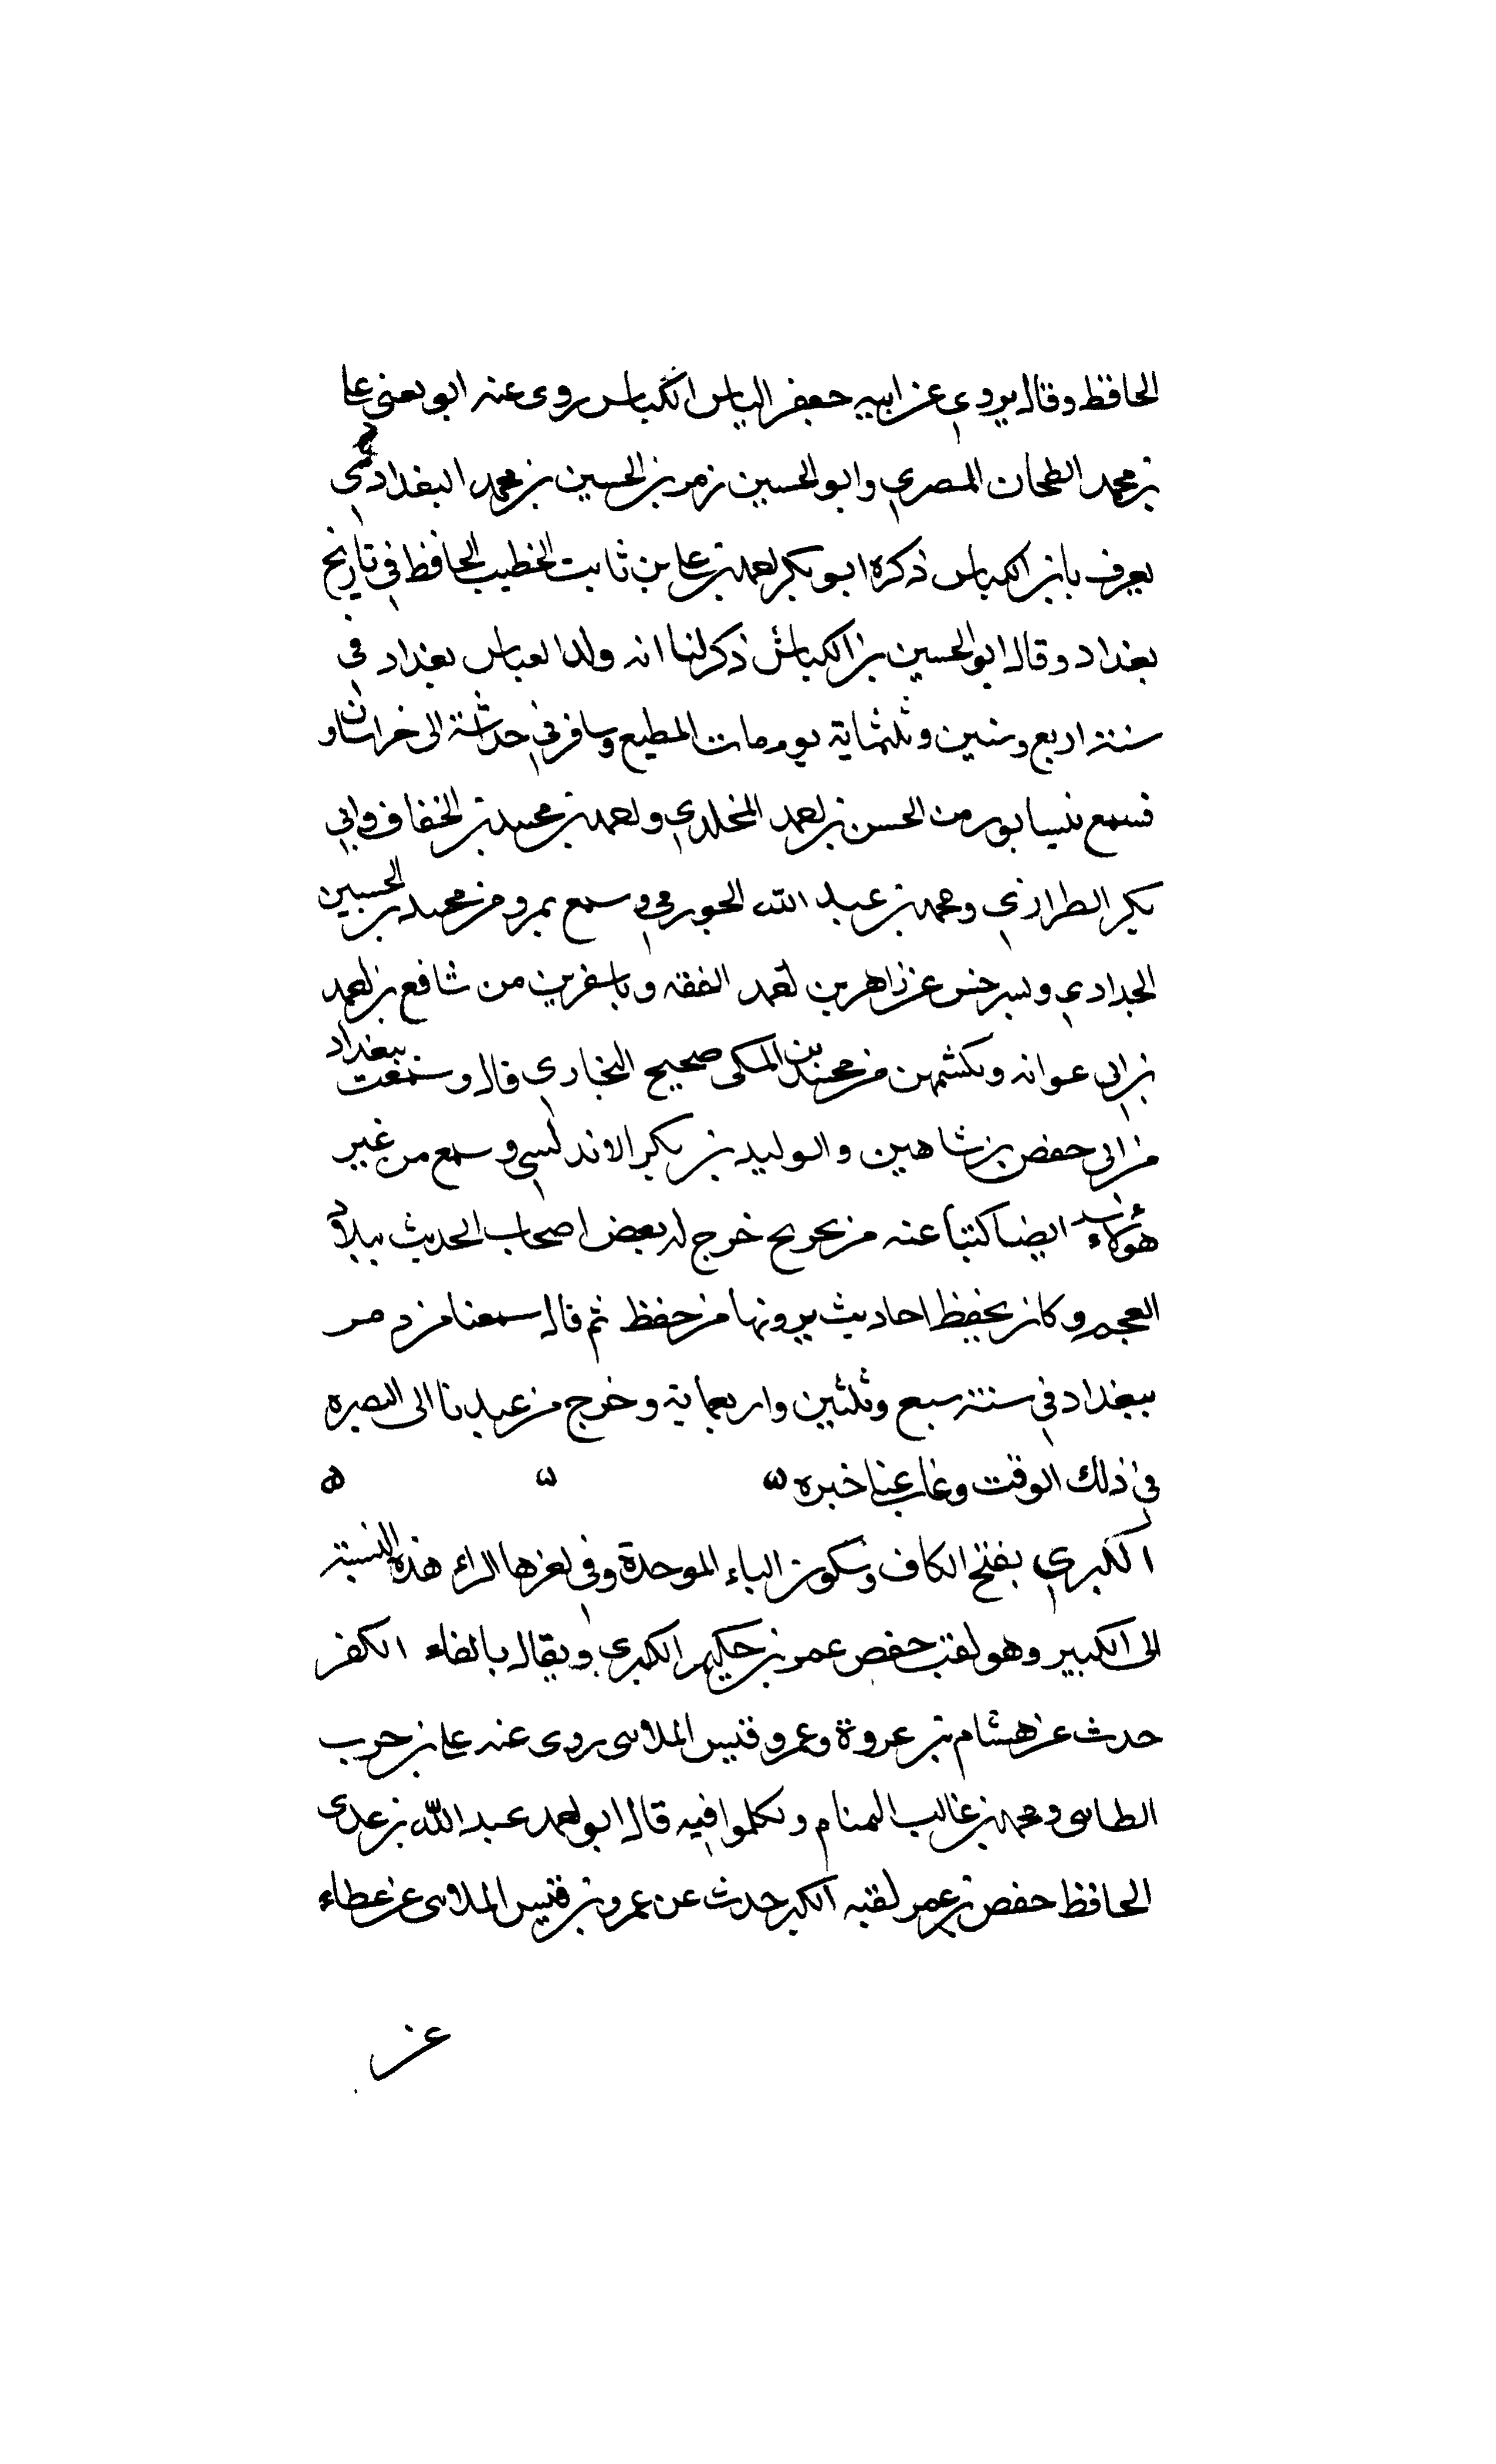 الحافظ وقال يروي عن ابيه جعفر الياس الكباس روى عنه ابو يعني على
بن محمد الطحان المصري وابو الحسين بن الحسين بن محمد البغدادي
يعرف بابن الكباس ذكره ابو بكر احمد بن على بن ثابت الخطيب الحافظ في تاريخ
بغداد وقال ابو الحسين بن الكباش ذكر لنا انه ولد العباس بغداد في
سنة اربع وستين وثلثماية يوم مات المطيع وسافر في حداثته الى خراسان و
فسمع نيسابور من الحسن بن احمد المخلدي واحمد بن محمد بن الخفاف وابي
بكر الطرازي ومحمد بن عبد الله الجوزقي وسمع بمرو من محمد بن الحسين
الحدادي وبسرخس عن زاهر بن احمد الفقه وباسفرين من شافع بن احمد
بن ابي عوانه وبكشمهن من محمد بن المكى صحيح البخاري قال وسمعت ببغداد
من ابى حفص بن شاهين والوليد بن بكر الاندلسي وسمع من غير
هؤلاء ايضا كتبنا عنه من تخريج خرج له بعض اصحاب الحديث ببلاد
العجم وكان يحفظ احاديث يرونها من حفظ ثم قال سمعنا من
ببغداد في سنة سبع وثلثين واربعماية وخرج من عندنا الى البصره
في ذلك الوقت وغاب عنا خبره ه ه ه
الكبري بفتح الكاف وسكون الباء الموحدة وفى اخرها الراء هذه النسبة
الى الكبير وهو لقب حفص عمر بن حكيم الكبرى ويقال بالفاء الكفر
حدث عن هشام بن عروة وعمرو قيس الملاى روى عنه على بن حرب
الطاى ومحمد بن غالب التمتام وتكلموا فيه قال ابو احمد عبد الله بن عدى
الحافظ حفص بن عمر لقبه الكبر حدث عن عمرو بن قيس الملاى عن عطاء
عن